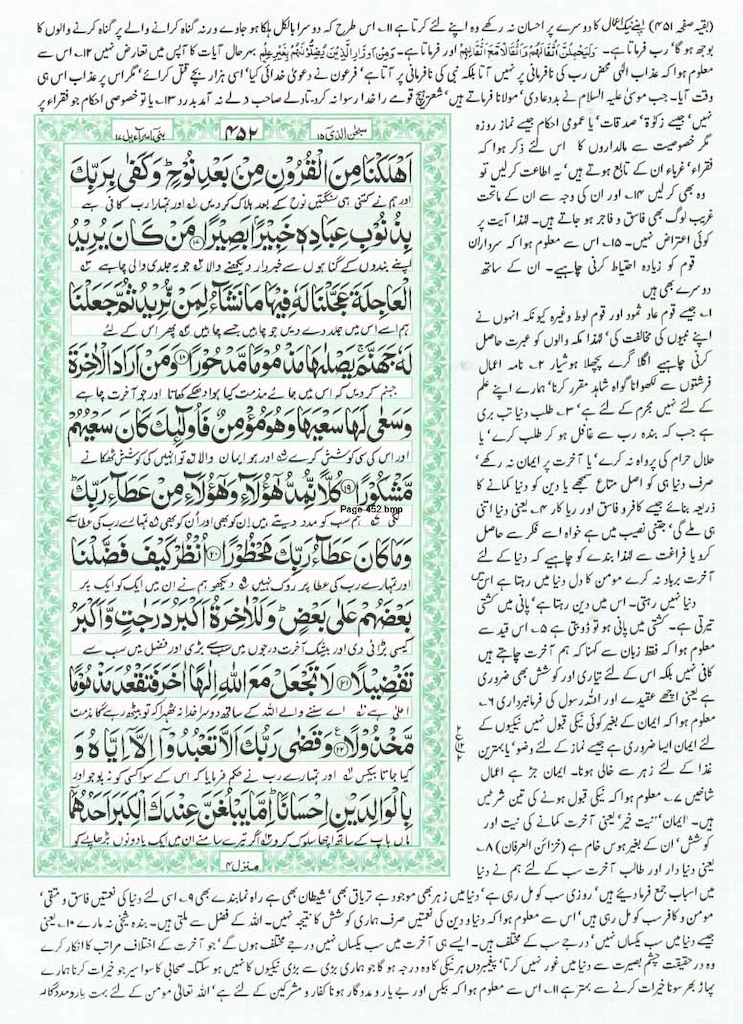 (بقیہ صفحہ ۴۵۱) اپنے نیک اعمال کا دوسرے پر احسان نہ رکھے وہ اپنے لئے کرتا ہے ۱۱۔ اس طرح کہ دوسرا بالکل ہلکا ہو جاوے ورنہ گناہ کرانے والے پر گناہ کرنے والوں کا
بوجھ ہو گا' رب فرماتا ہے۔ وَلَيَحْمِلُنَّ اَثْقَالَهُمْ وَاَثْقَالًا مَّعَ اَثْقَالِهِمْ اور فرماتا ہے۔ وَمِنْ اَوْزَارِ الَّذِيْنَ يُضِلُّوْنَهُمْ بِغَيْرِ عِلْمٍ بہر حال آیات کا آپس میں تعارض نہیں ۱۲۔ اس سے
معلوم ہوا کہ عذاب الٰہی محض رب کی نافرمانی پر نہیں آتا بلکہ نبی کی نافرمانی پر آتا ہے' فرعون نے دعویٰ خدائی کیا' اسی ہزار بچے قتل کرائے' مگر اس پر عذاب اس ہی
وقت آیا۔ جب موسیٰ علیہ السلام نے بددعا دی' مولانا فرماتے ہیں' شعر ہیچ قومے را خدا رسوا نہ کرد تا دلے صاحب دلے نہ آمد بدرد ۱۳۔ یا تو خصوصی احکام جو فقراء پر
نہیں' جیسے زکوٰۃ' صدقات' یا عمومی احکام جیسے نماز روزہ
مگر خصوصیت سے مالداروں کا اس لئے ذکر ہوا کہ
فقراء' غرباء ان کے تابع ہوتے ہیں' یہ اطاعت کرلیں تو
وہ بھی کر لیں ۱۴۔ اور ان کی وجہ سے ان کے ماتحت
غریب لوگ بھی فاسق و فاجر ہو جاتے ہیں۔ لہٰذا آیت پر
کوئی اعتراض نہیں۔ ۱۵۔ اس سے معلوم ہوا کہ سرداران
قوم کو زیادہ احتیاط کرنی چاہیے۔ ان کے ساتھ
دوسرے بھی ہیں
۱۔ جیسے قوم عاد ثمود اور قوم لوط وغیرہ کیونکہ انہوں نے
اپنے نبیوں کی مخالفت کی' لہٰذا مکہ والوں کو عبرت حاصل
کرنی چاہیے اگلا گرے پچھلا ہوشیار ۲۔ نامہ اعمال
فرشتوں سے لکھوانا گواہ شاہد مقرر کرنا' ہمارے اپنے علم
کے لئے نہیں مجرم کے لئے ہے' ۳۔ طلب دنیا تب بری
ہے جب کہ بندہ رب سے غافل ہو کر طلب کرے' یا
حلال حرام کی پرواہ نہ کرے' یا آخرت پر ایمان نہ رکھے'
صرف دنیا ہی کو اصل متاع سمجھے یا دین کو دنیا کمانے کا
ذریعہ بنائے جیسے کافر و فاسق اور ریا کار ۴۔ یعنی دنیا اتنی
ہی ملے گی' جتنی نصیب میں ہے خواہ اسے فکر سے حاصل
کرو یا فراغت سے لہٰذا بندے کو چاہیے کہ دنیا کے لئے
آخرت برباد نہ کرے مومن کا دل دنیا میں رہتا ہے اس میں
دنیا نہیں رہتی۔ اس میں دین رہتا ہے' پانی میں کشتی
تیرتی ہے۔ کشتی میں پانی ہو تو ڈوبتی ہے ۵۔ اس قید سے
معلوم ہوا کہ فقط زبان سے کہنا کہ ہم آخرت چاہتے ہیں
کافی نہیں بلکہ اس کے لئے تیاری اور کوشش بھی ضروری
ہے یعنی اچھے عقیدے اور اللہ رسول کی فرمانبرداری ۶۔
معلوم ہوا کہ ایمان کے بغیر کوئی نیکی قبول نہیں نیکیوں کے
لئے ایمان ایسا ضروری ہے جیسے نماز کے لئے وضو' یا بہترین
غذا کے لئے زہر سے خالی ہونا۔ ایمان جڑ ہے اعمال
شاخیں ۷۔ معلوم ہوا کہ نیکی قبول ہونے کی تین شرطیں
ہیں۔ 'ایمان' 'نیت خیر' یعنی آخرت کمانے کی نیت اور
کوشش' ان کے بغیر ہوس خام ہے (خزائن العرفان) ۸۔
یعنی دنیا دار اور طالب آخرت سب کے لئے ہم نے دنیا
بنی اسراءیل ۱۷
۴۵۲
سبحٰن الذی ۱۵
اَهْلَكْنَا مِنَ الْقُرُوْنِ مِنْۢ بَعْدِ نُوْحٍ ؕ وَ كَفٰى بِرَبِّكَ
اور ہم نے کتنی ہی سنگتیں نوح کے بعد ہلاک کر دیں اور تمہارا رب کافی ہے
بِذُنُوْبِ عِبَادِهٖ خَبِيْرًۢا بَصِيْرًا ۝۱۷ مَنْ كَانَ يُرِيْدُ
اپنے بندوں کے گناہوں سے خبردار دیکھنے والا جو یہ جلدی والی چاہے
الْعَاجِلَةَ عَجَّلْنَا لَهٗ فِيْهَا مَا نَشَآءُ لِمَنْ نُّرِيْدُ ثُمَّ جَعَلْنَا
ہم اسے اس میں جلد دے دیں جو چاہیں جسے چاہیں پھر اس کے لئے
لَهٗ جَهَنَّمَ ۚ يَصْلٰىهَا مَذْمُوْمًا مَّدْحُوْرًا ۝۱۸ وَ مَنْ اَرَادَ الْاٰخِرَةَ
جہنم کر دیں کہ اس میں جائے مذمت کیا ہوا دھکے کھاتا اور جو آخرت چاہے
وَ سَعٰى لَهَا سَعْيَهَا وَ هُوَ مُؤْمِنٌ فَاُولٰٓئِكَ كَانَ سَعْيُهُمْ
اور اس کی سی کوشش کرے اور ہو ایمان والا تو انہیں کی کوشش ٹھکانے
مَّشْكُوْرًا ۝۱۹ كُلًّا نُّمِدُّ هٰۤؤُلَآءِ وَ هٰۤؤُلَآءِ مِنْ عَطَآءِ رَبِّكَ ؕ
Page-452.bmp
لگی ہم سب کو مدد دیتے ہیں ان کو بھی اور اُن کو بھی تمہارے رب کی عطا سے
وَ مَا كَانَ عَطَآءُ رَبِّكَ مَحْظُوْرًا ۝۲۰ اُنْظُرْ كَيْفَ فَضَّلْنَا
اور تمہارے رب کی عطا پر روک نہیں دیکھو ہم نے ان میں ایک کو ایک پر
بَعْضَهُمْ عَلٰى بَعْضٍ ؕ وَ لَلْاٰخِرَةُ اَكْبَرُ دَرَجٰتٍ وَّ اَكْبَرُ
کیسی بڑائی دی اور بیشک آخرت درجوں میں سب سے بڑی اور فضل میں سب سے
تَفْضِيْلًا ۝۲۱ لَا تَجْعَلْ مَعَ اللّٰهِ اِلٰهًا اٰخَرَ فَتَقْعُدَ مَذْمُوْمًا
اعلیٰ ہے اے سننے والے اللہ کے ساتھ دوسرا خدا نہ ٹھہرا کہ تو بیٹھ رہے گا مذمت
مَّخْذُوْلًا ۝۲۲ وَ قَضٰى رَبُّكَ اَلَّا تَعْبُدُوْۤا اِلَّاۤ اِيَّاهُ وَ
کیا جاتا بیکس اور تمہارے رب نے حکم فرمایا کہ اس کے سوا کسی کو نہ پوجو اور
بِالْوَالِدَيْنِ اِحْسَانًا ؕ اِمَّا يَبْلُغَنَّ عِنْدَكَ الْكِبَرَ اَحَدُهُمَاۤ
ماں باپ کے ساتھ اچھا سلوک کرو اگر تیرے سامنے ان میں ایک یا دونوں بڑھاپے کو
منزل ۴
میں اسباب جمع فرما دیئے ہیں' روزی سب کو مل رہی ہے' دنیا میں زہر بھی موجود ہے تریاق بھی' شیطان بھی ہے راہ نما بندے بھی ۹۔ اسی لئے دنیا کی نعمتیں فاسق و متقی'
مومن و کافر سب کو مل رہی ہیں' اس سے معلوم ہوا کہ دنیا و دین کی نعمتیں صرف ہماری کوشش کا نتیجہ نہیں۔ اللہ کے فضل سے ملتی ہیں۔ بندہ شیخی نہ مارے ۱۰۔ یعنی
جیسے دنیا میں سب یکساں نہیں' درجے سب کے مختلف ہیں۔ ایسے ہی آخرت میں سب یکساں نہیں درجے مختلف ہوں گے' جو آخرت کے اختلاف مراتب کا انکار کرے
وہ در حقیقت چشم بصیرت سے دنیا میں غور نہیں کرتا' پیغمبروں ہر نیکی کا وہ درجہ ہو گا جو ہماری بڑی سے بڑی نیکیوں کا نہیں ہو سکتا۔ صحابی کا سوا سیر جو خیرات کرنا ہمارے
پہاڑ بھر سونا خیرات کرنے سے بہتر ہے ۱۱۔ اس سے معلوم ہوا کہ بیکس اور بے یار و مددگار ہونا کفار و مشرکین کے لئے ہے' اللہ تعالیٰ مومن کے لئے بہت یار و مددگار